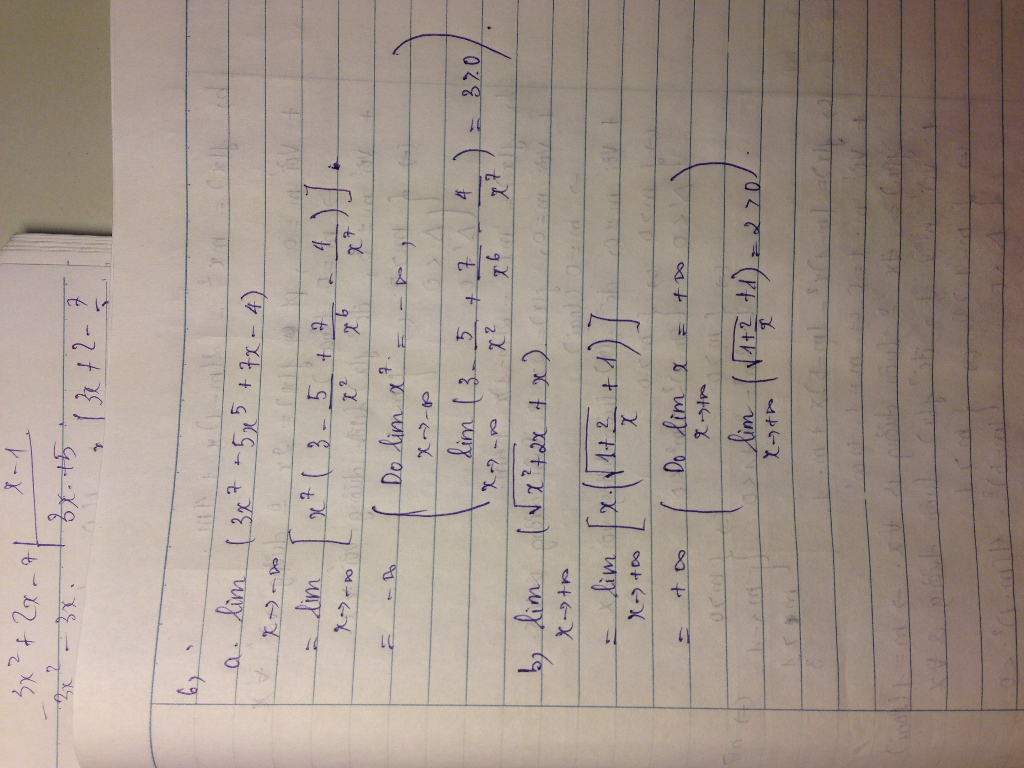 3x² + 2x - 7 | x - 1
3x² - 3x | 3x + 5
6,
a. lim (3x⁷ - 5x⁵ + 7x - 4)
x→-∞
= lim [x⁷(3 - 5/x² + 7/x⁶ - 4/x⁷)].
x→-∞
= -∞ (Do lim x⁷ = -∞,
x→-∞
lim (3 - 5/x² + 7/x⁶ - 4/x⁷) = 3>0).
x→-∞
b, lim (√x²+2x + x)
x→+∞
= lim [x.(√1+2/x + 1)]
x→+∞
= +∞ (Do lim x = +∞
x→+∞
lim (√1+2/x +1) = 2 >0).
x→+∞